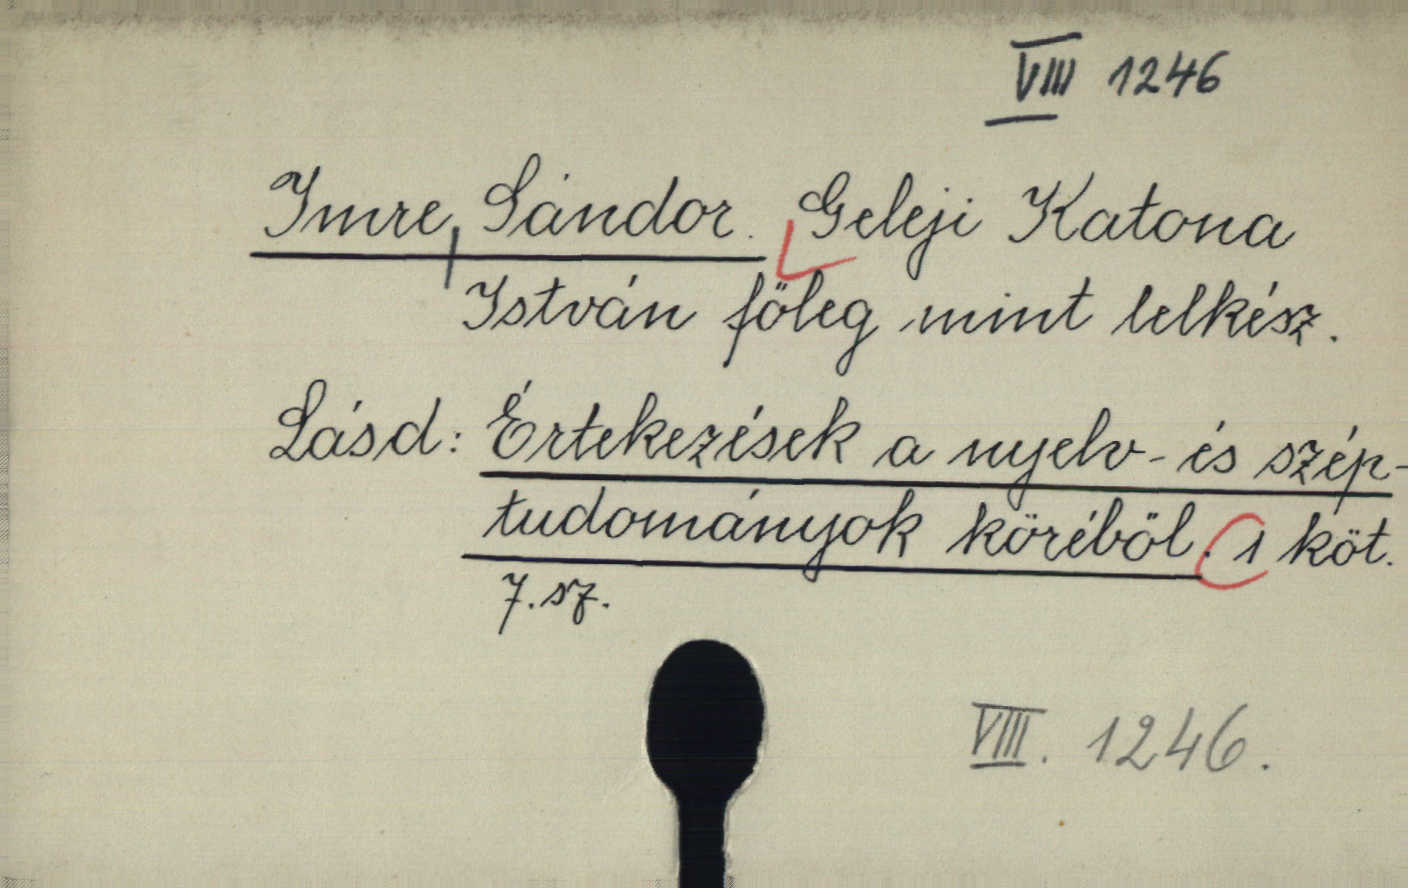 VIII 1246
Imre, Sándor. Geleji Katona
István főleg mint lelkész.
Lásd: Értekezések a nyelv- és szép-
tudományok köréből. 1 köt.
7. sz.
VIII. 1246.